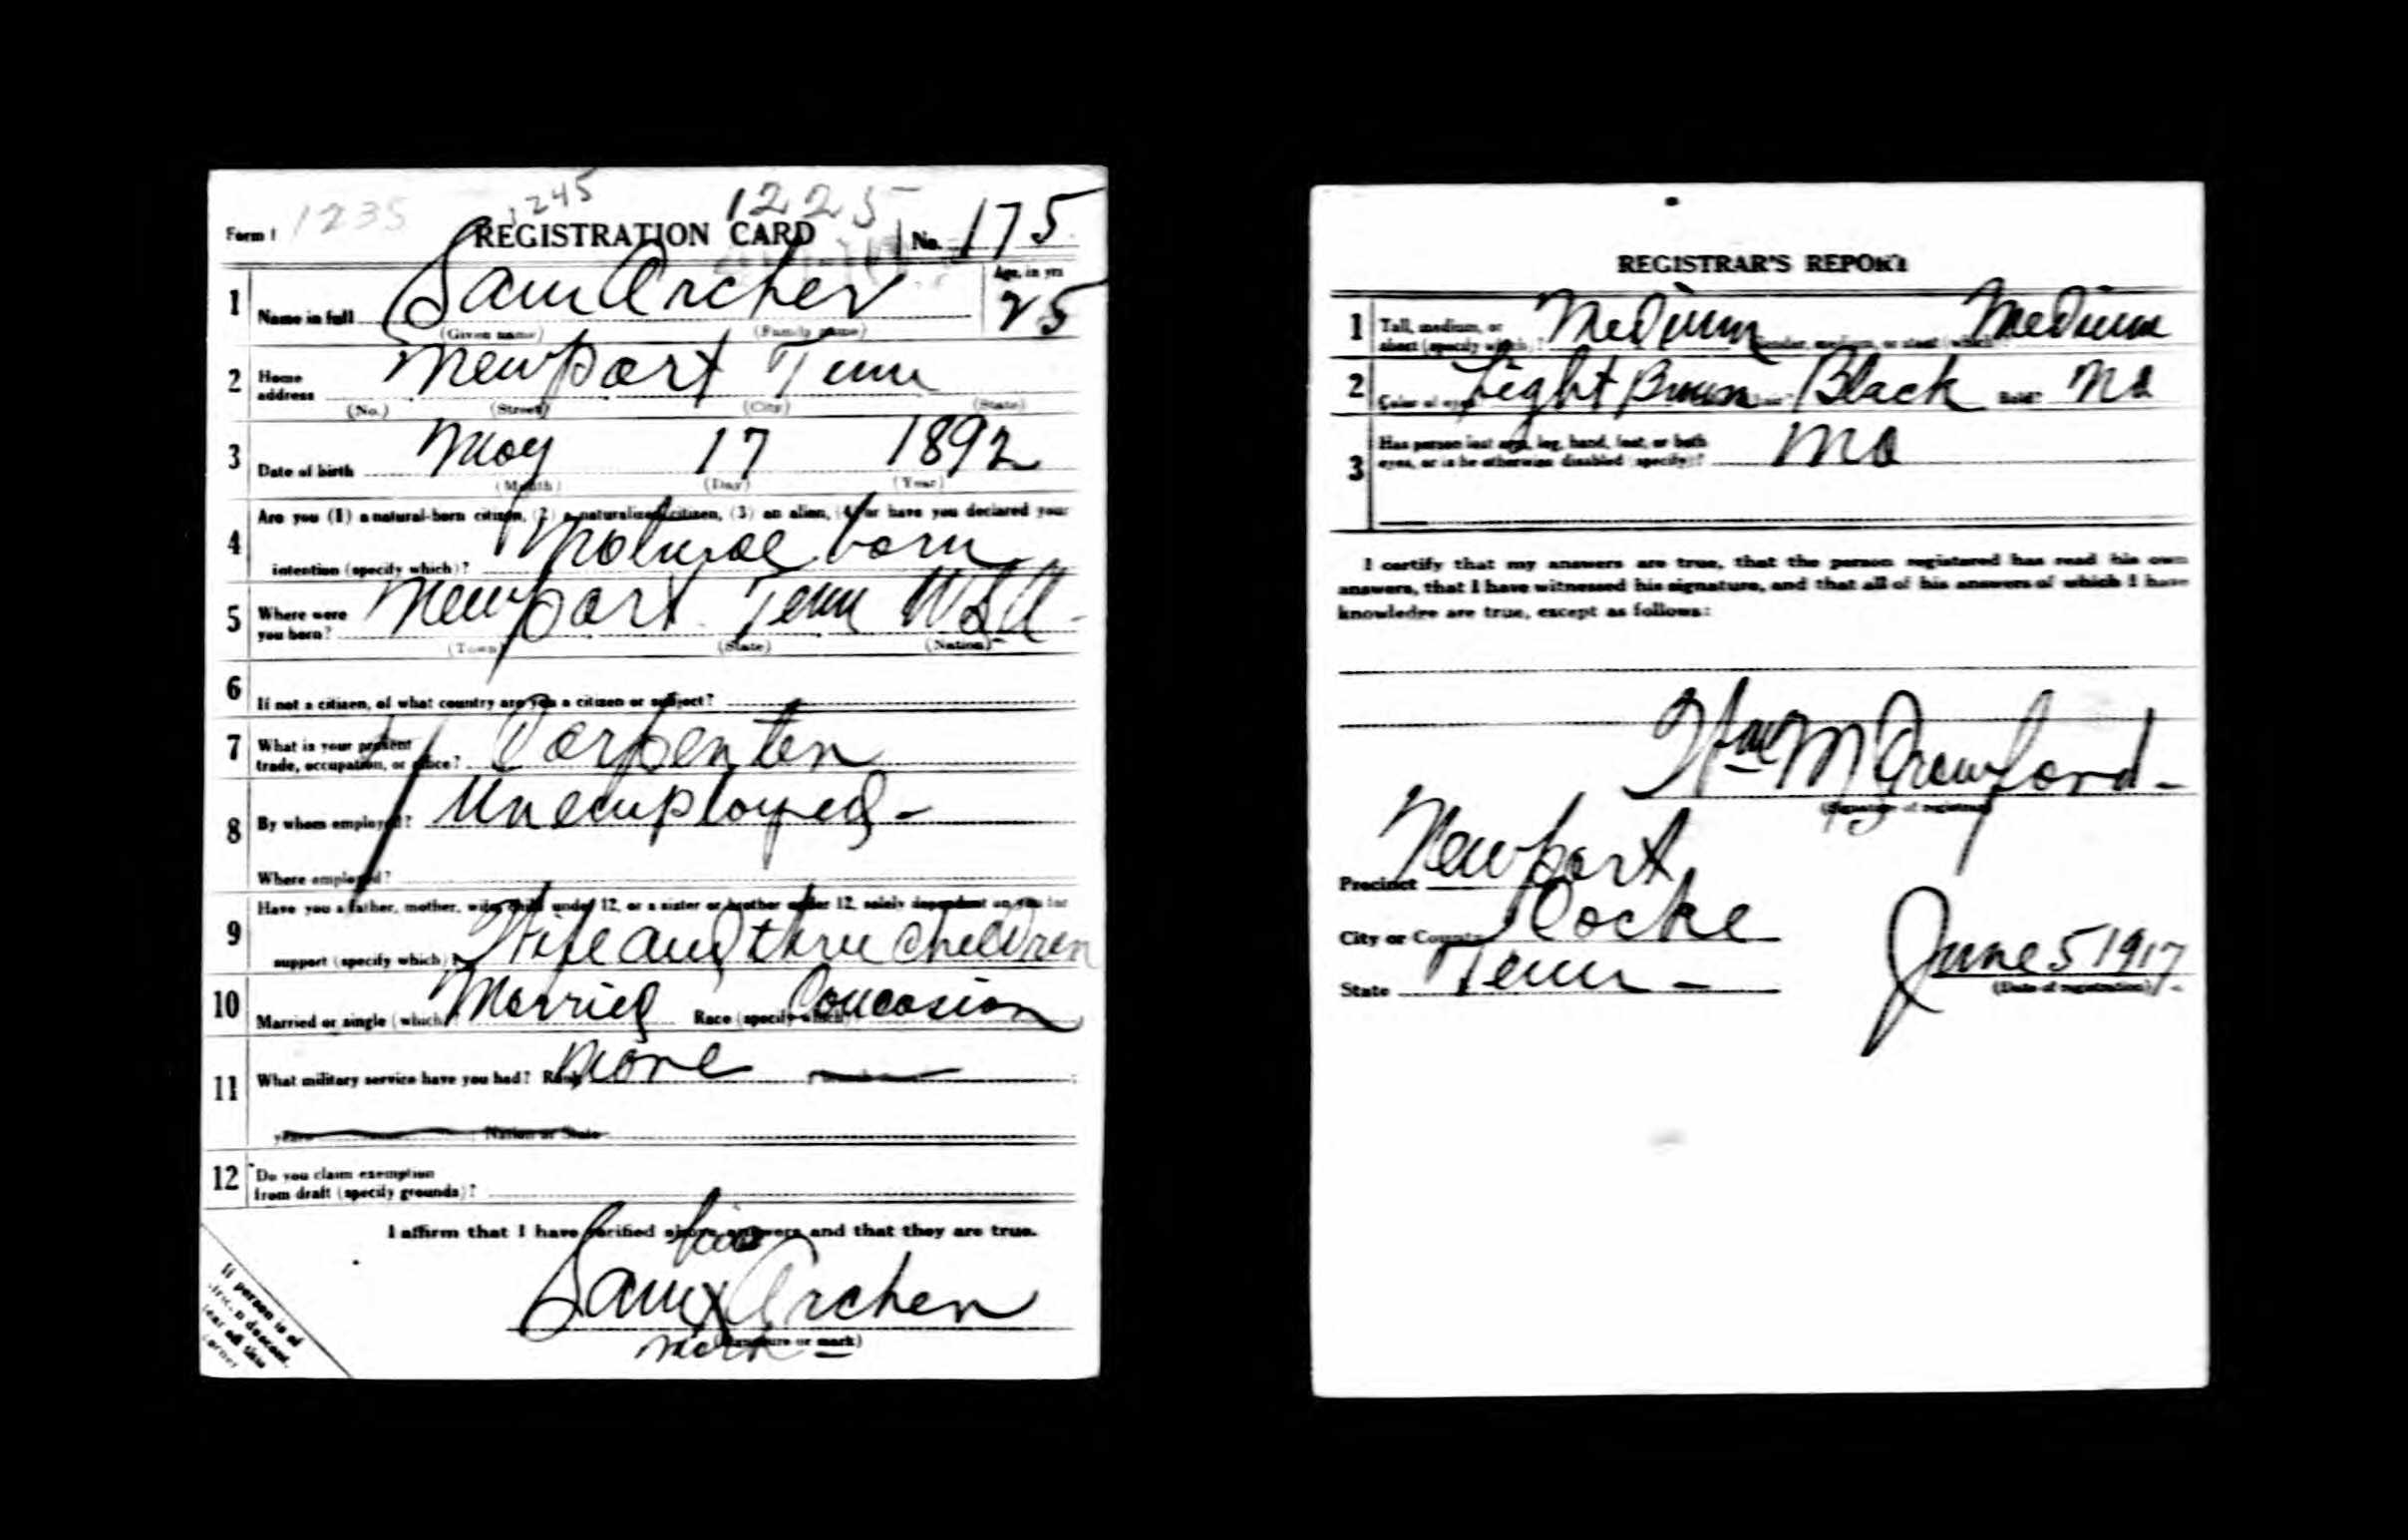 1245
1225
Form 1 1235 REGISTRATION CARD No. 175
1 Name in full Sam Archer Age, in yrs 25
(Given name) (Family name)
2 Home address Newport Tenn
(No.) (Street) (City) (State)
3 Date of birth May 17 1892
(Month) (Day) (Year)
Are you (1) a natural-born citizen, (2) a naturalized citizen, (3) an alien, (4) or have you declared your
4 intention (specify which)? Natural born
5 Where were you born? Newport Tenn USA
(Town) (State) (Nation)
6 If not a citizen, of what country are you a citizen or subject?
7 What is your present trade, occupation, or office? Carpenter
8 By whom employed? Unemployed -
Where employed?
Have you a father, mother, wife, child under 12, or a sister or brother under 12, solely dependent on you for
9 support (specify which)? Wife and three Children
10 Married or single (which)? Married Race (specify which)? Coucasian
11 What military service have you had? Rank None
years Nation or State
12 Do you claim exemption
from draft (specify grounds)?
I affirm that I have verified above answers and that they are true.
his
Sam X Archer
mark (Signature or mark)
If person is of
African descent,
tear off this
corner
REGISTRAR'S REPORT
1 Tall, medium, or short (specify which)? Medium Slender, medium, or stout (which)? Medium
2 Color of eyes? Light Brown Color of hair? Black Bald? No
3 Has person lost arm, leg, hand, foot, or both
eyes, or is he otherwise disabled (specify)? No
I certify that my answers are true, that the person registered has read his own
answers, that I have witnessed his signature, and that all of his answers of which I have
knowledge are true, except as follows:
Wm M Crawford -
(Signature of registrar)
Precinct Newport
City or County Cocke
State Tenn - June 5 1917
(Date of registration)